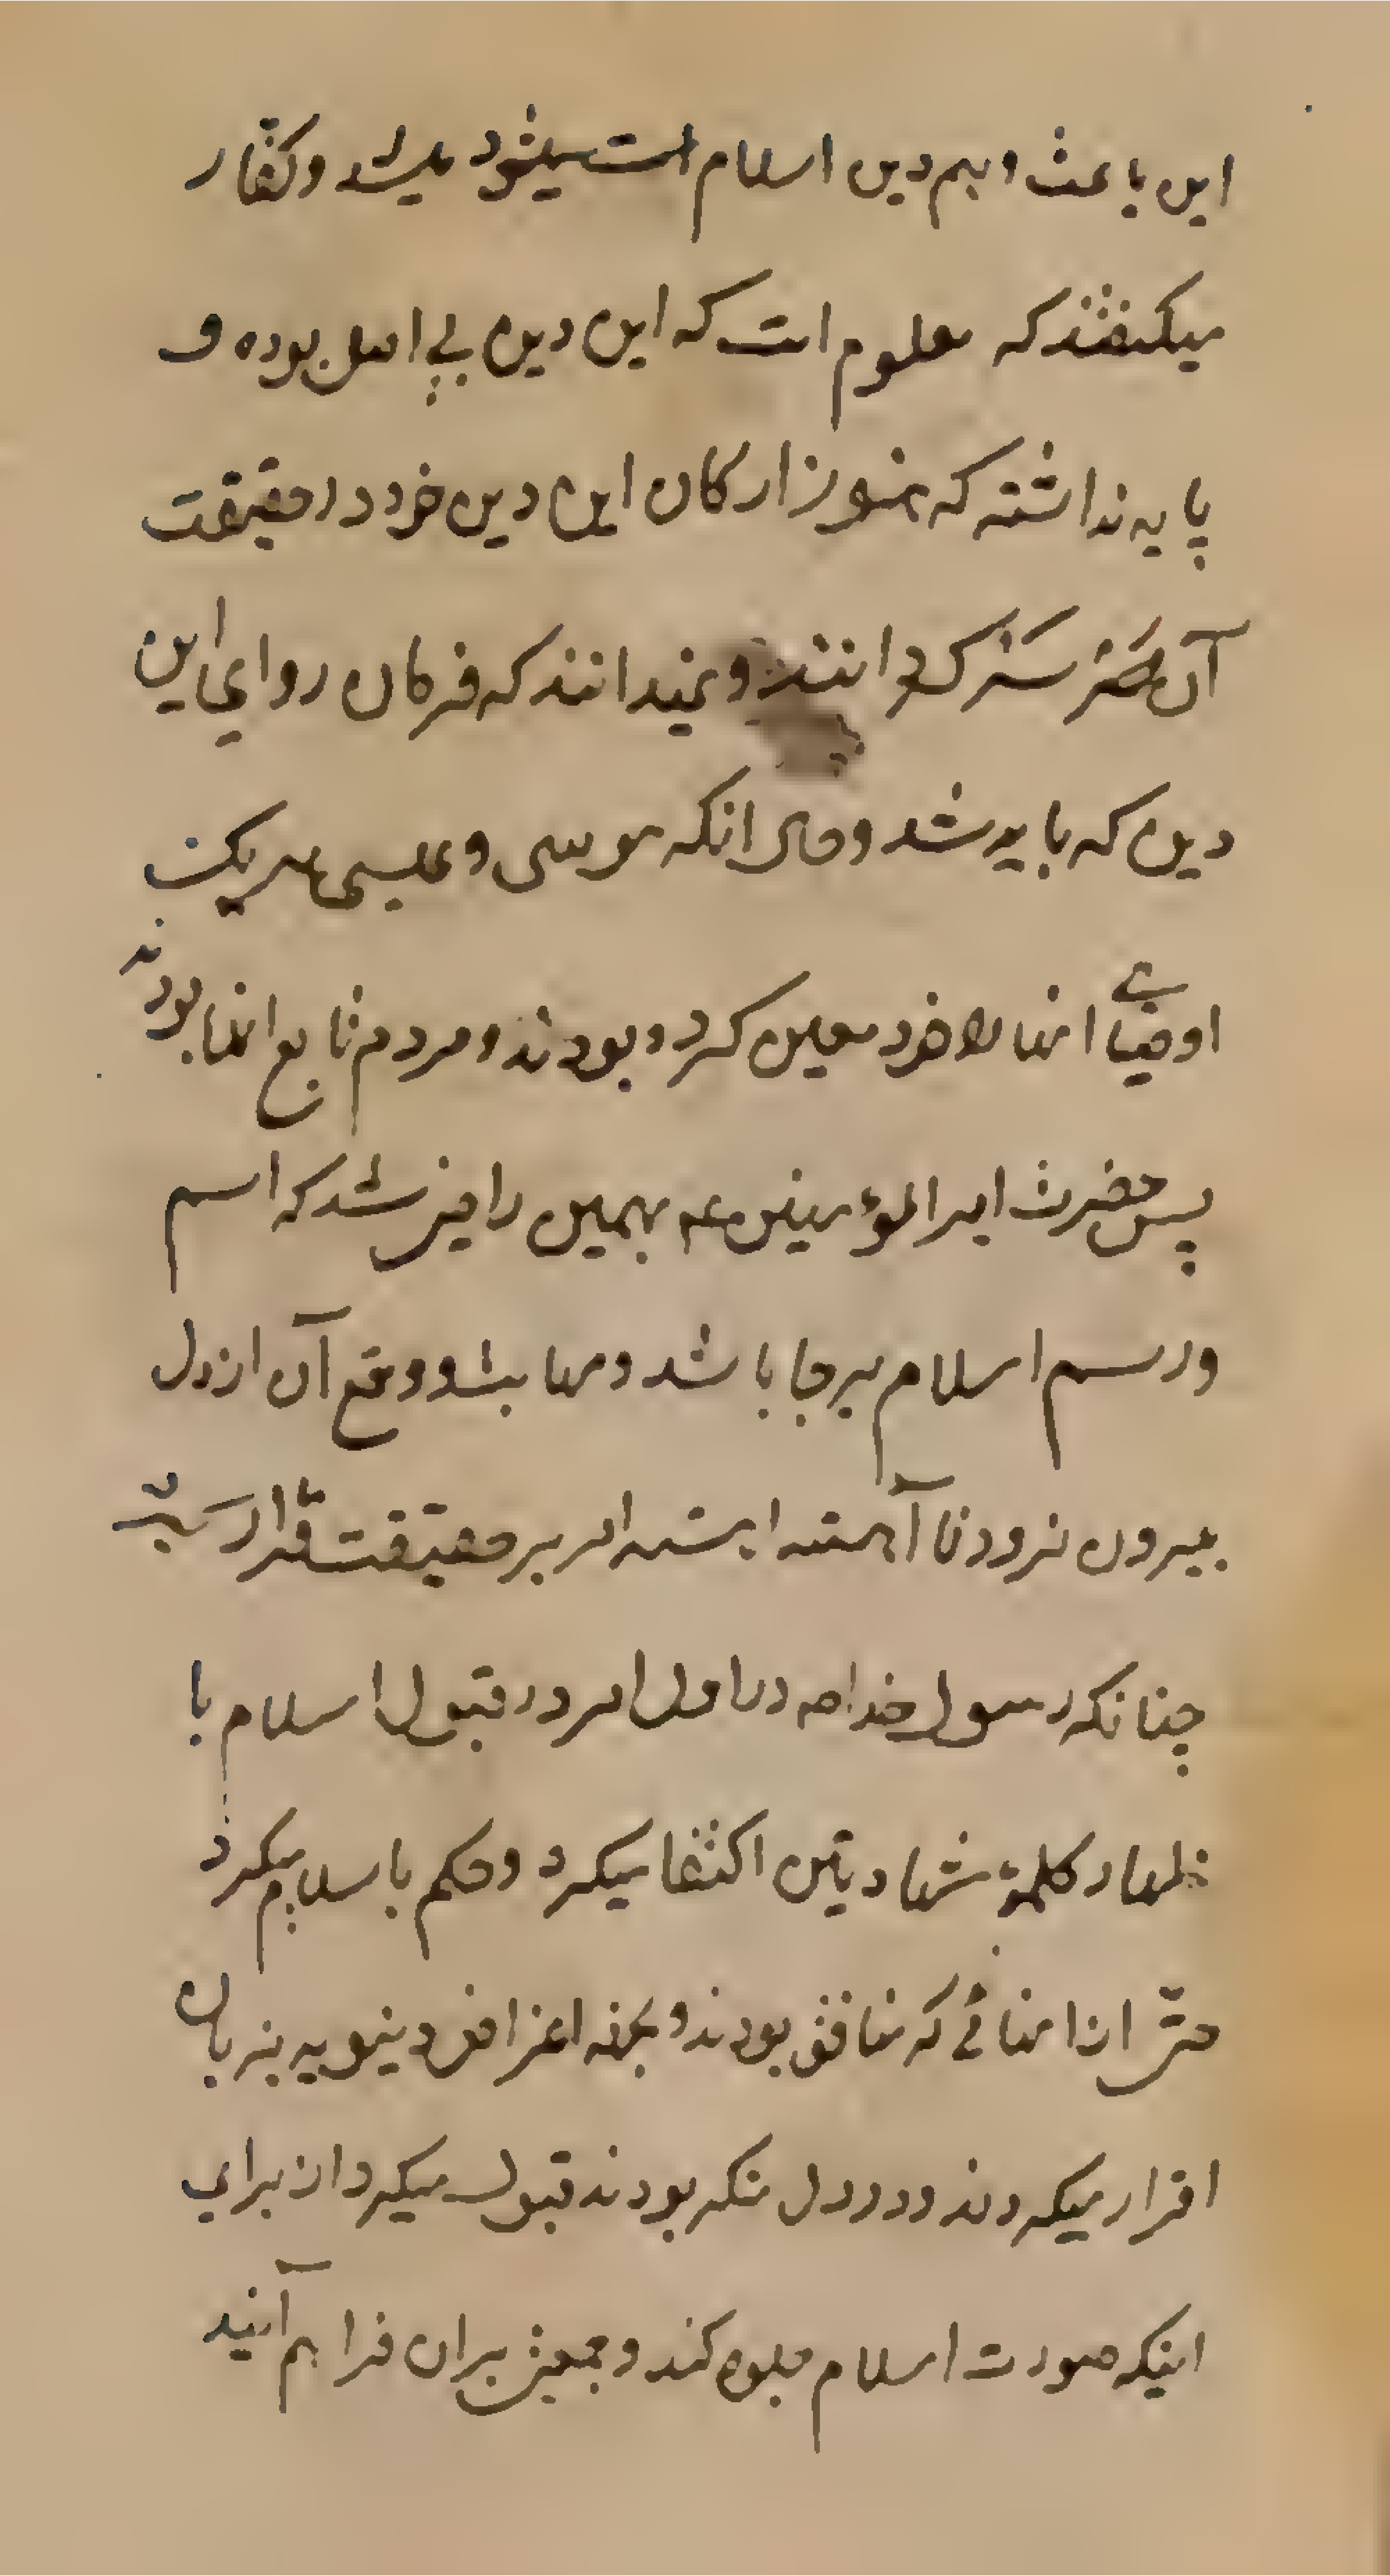 این باعث وهم دین اسلام است میشود میشد و کفّار
میکفتند که معلوم است که این دین بی اصل بوده و
پایه نداشته که هنوز ارکان این دین خود در حقیقت
آن و نمیدانند که فرمان روای این
دین که باید شد و حال انکه موسی و عیسی هریک
اوصیای انها را خود معین کرده بودند و مردم تابع انها بودند
پس حضرت امیر المؤمنین ع بهمین راضی شد که اسم
و رسم اسلام برجا باشد و وقع آن از دل
بیرون نرود تا آهسته اهسته امر بر حقیقت قرار
چنانکه رسول خدا ص در اول امر در قبول اسلام با
ظهار کلمۀ شهادتین اکتفا میکرد و حکم باسلام میکرد
حتّی از انهائی که منافق بودند و بجهة اغراض دینویه بزبان
اقرار میکردند و در دل منکر بودند قبول میکرد از برای
اینکه صورت اسلام جلوه کند و جمعی بران فراهم آیند